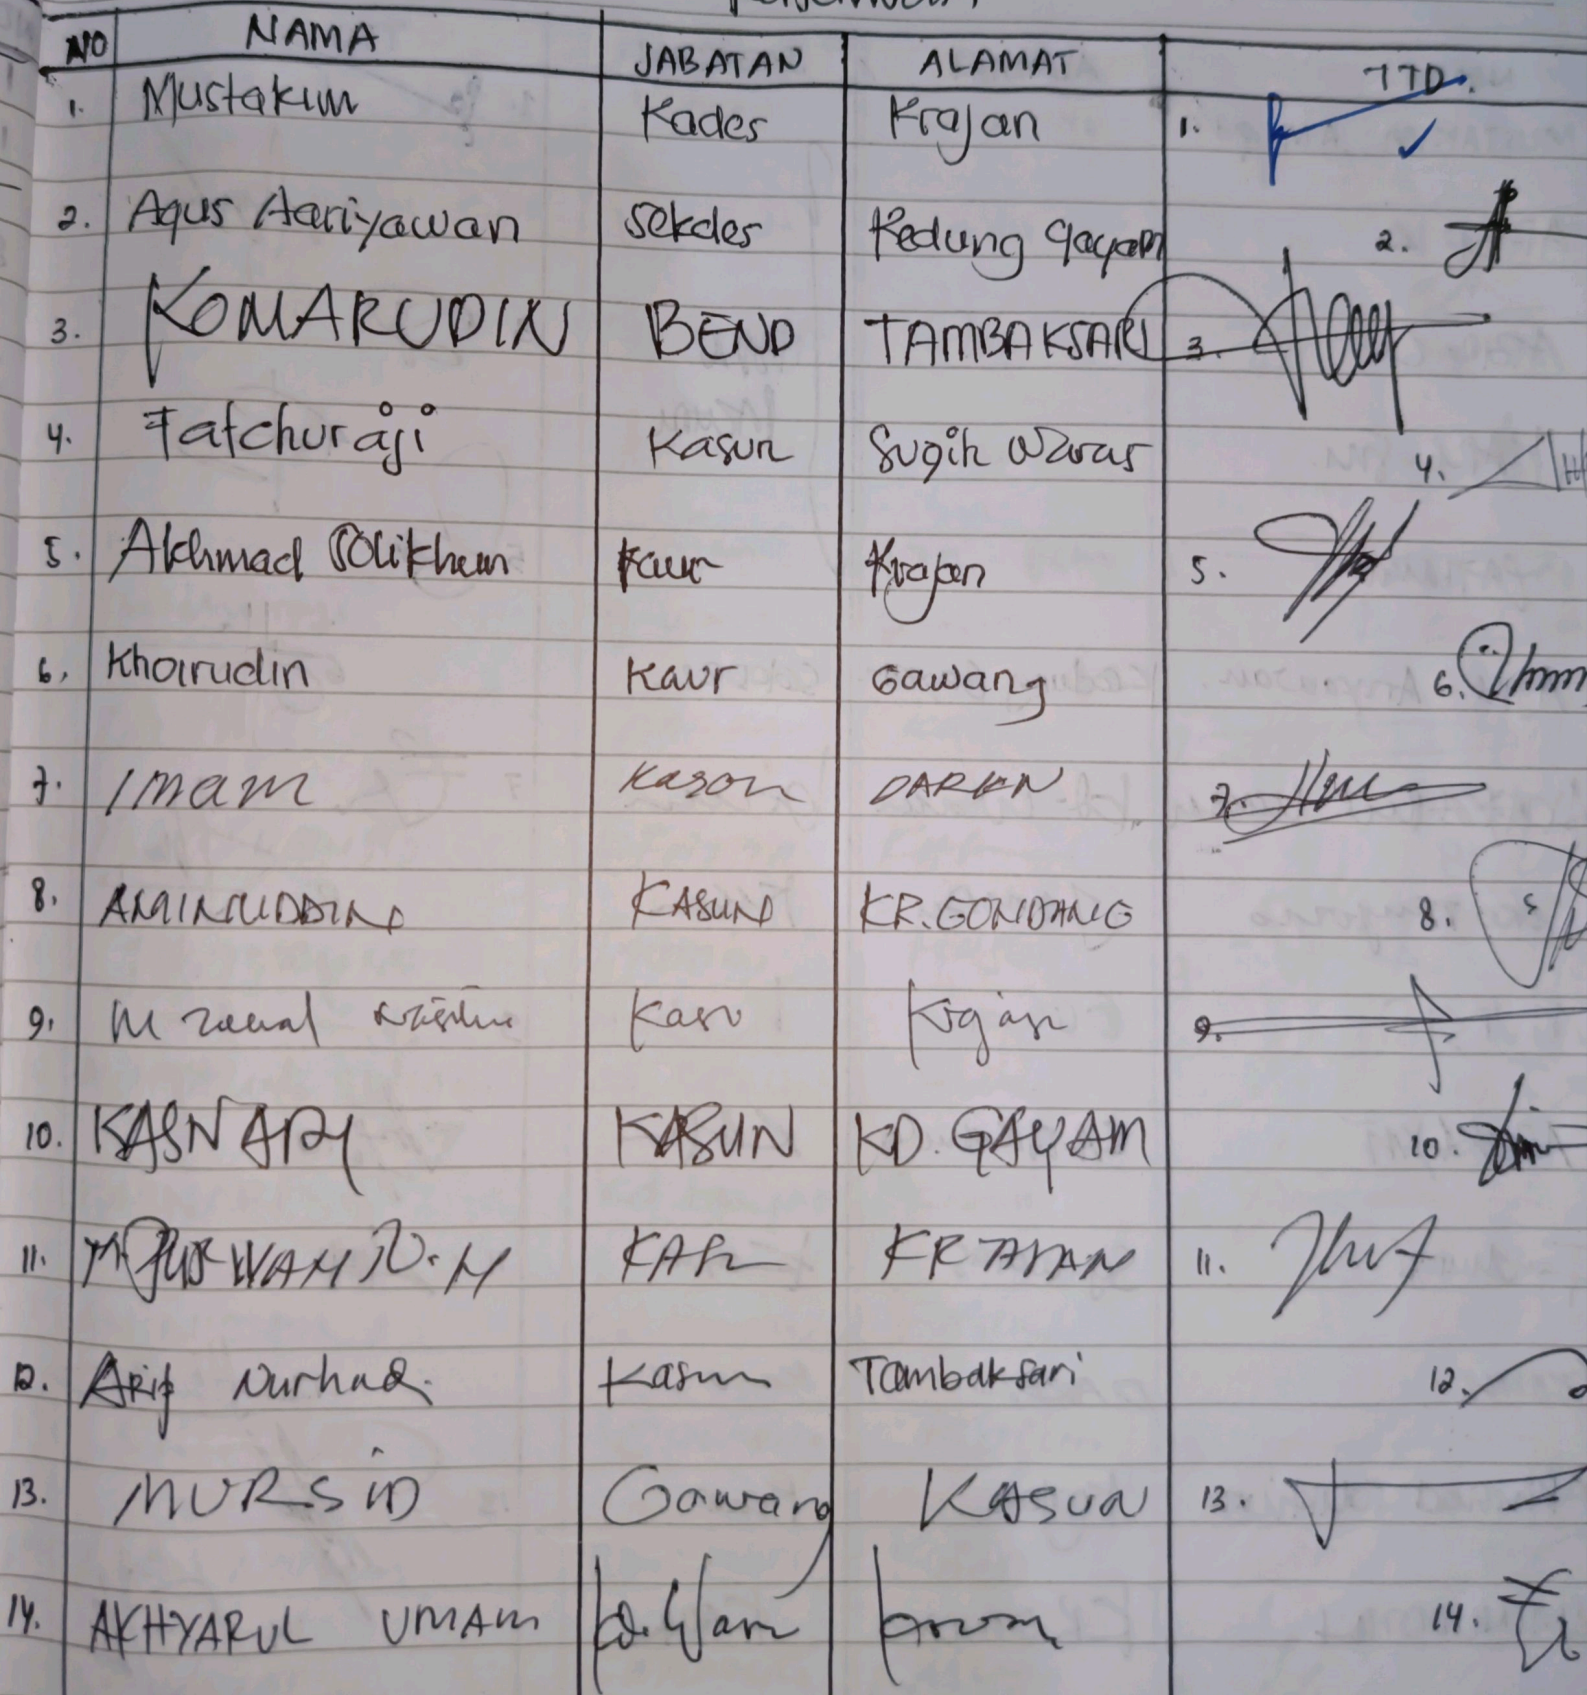 NO NAMA JABATAN ALAMAT TTD.
1. Mustakim Kades Krajan 1.
2. Agus Aariyawan Sekdes Kedung gayam 2.
3. KOMARUDIN BEND TAMBAKSARI 3.
4. Fatchuraji Kasun Sugih Waras 4.
5. Akhmad Solikhun Kaur Krajan 5.
6. Khoirudin Kaur Gawang 6.
7. Imam Kasun 7.
8. AMINUDDIN KASUN KR. GONDANG 8.
9. M Krajan 9.
10. KASNARI KASUN KD. GAYAM 10.
11. KRAJAN 11.
12. Arif Nurhadi Kasun Tambaksari 12.
13. MURSID Gawang KASUN 13.
14. AKHYARUL UMAM 14.